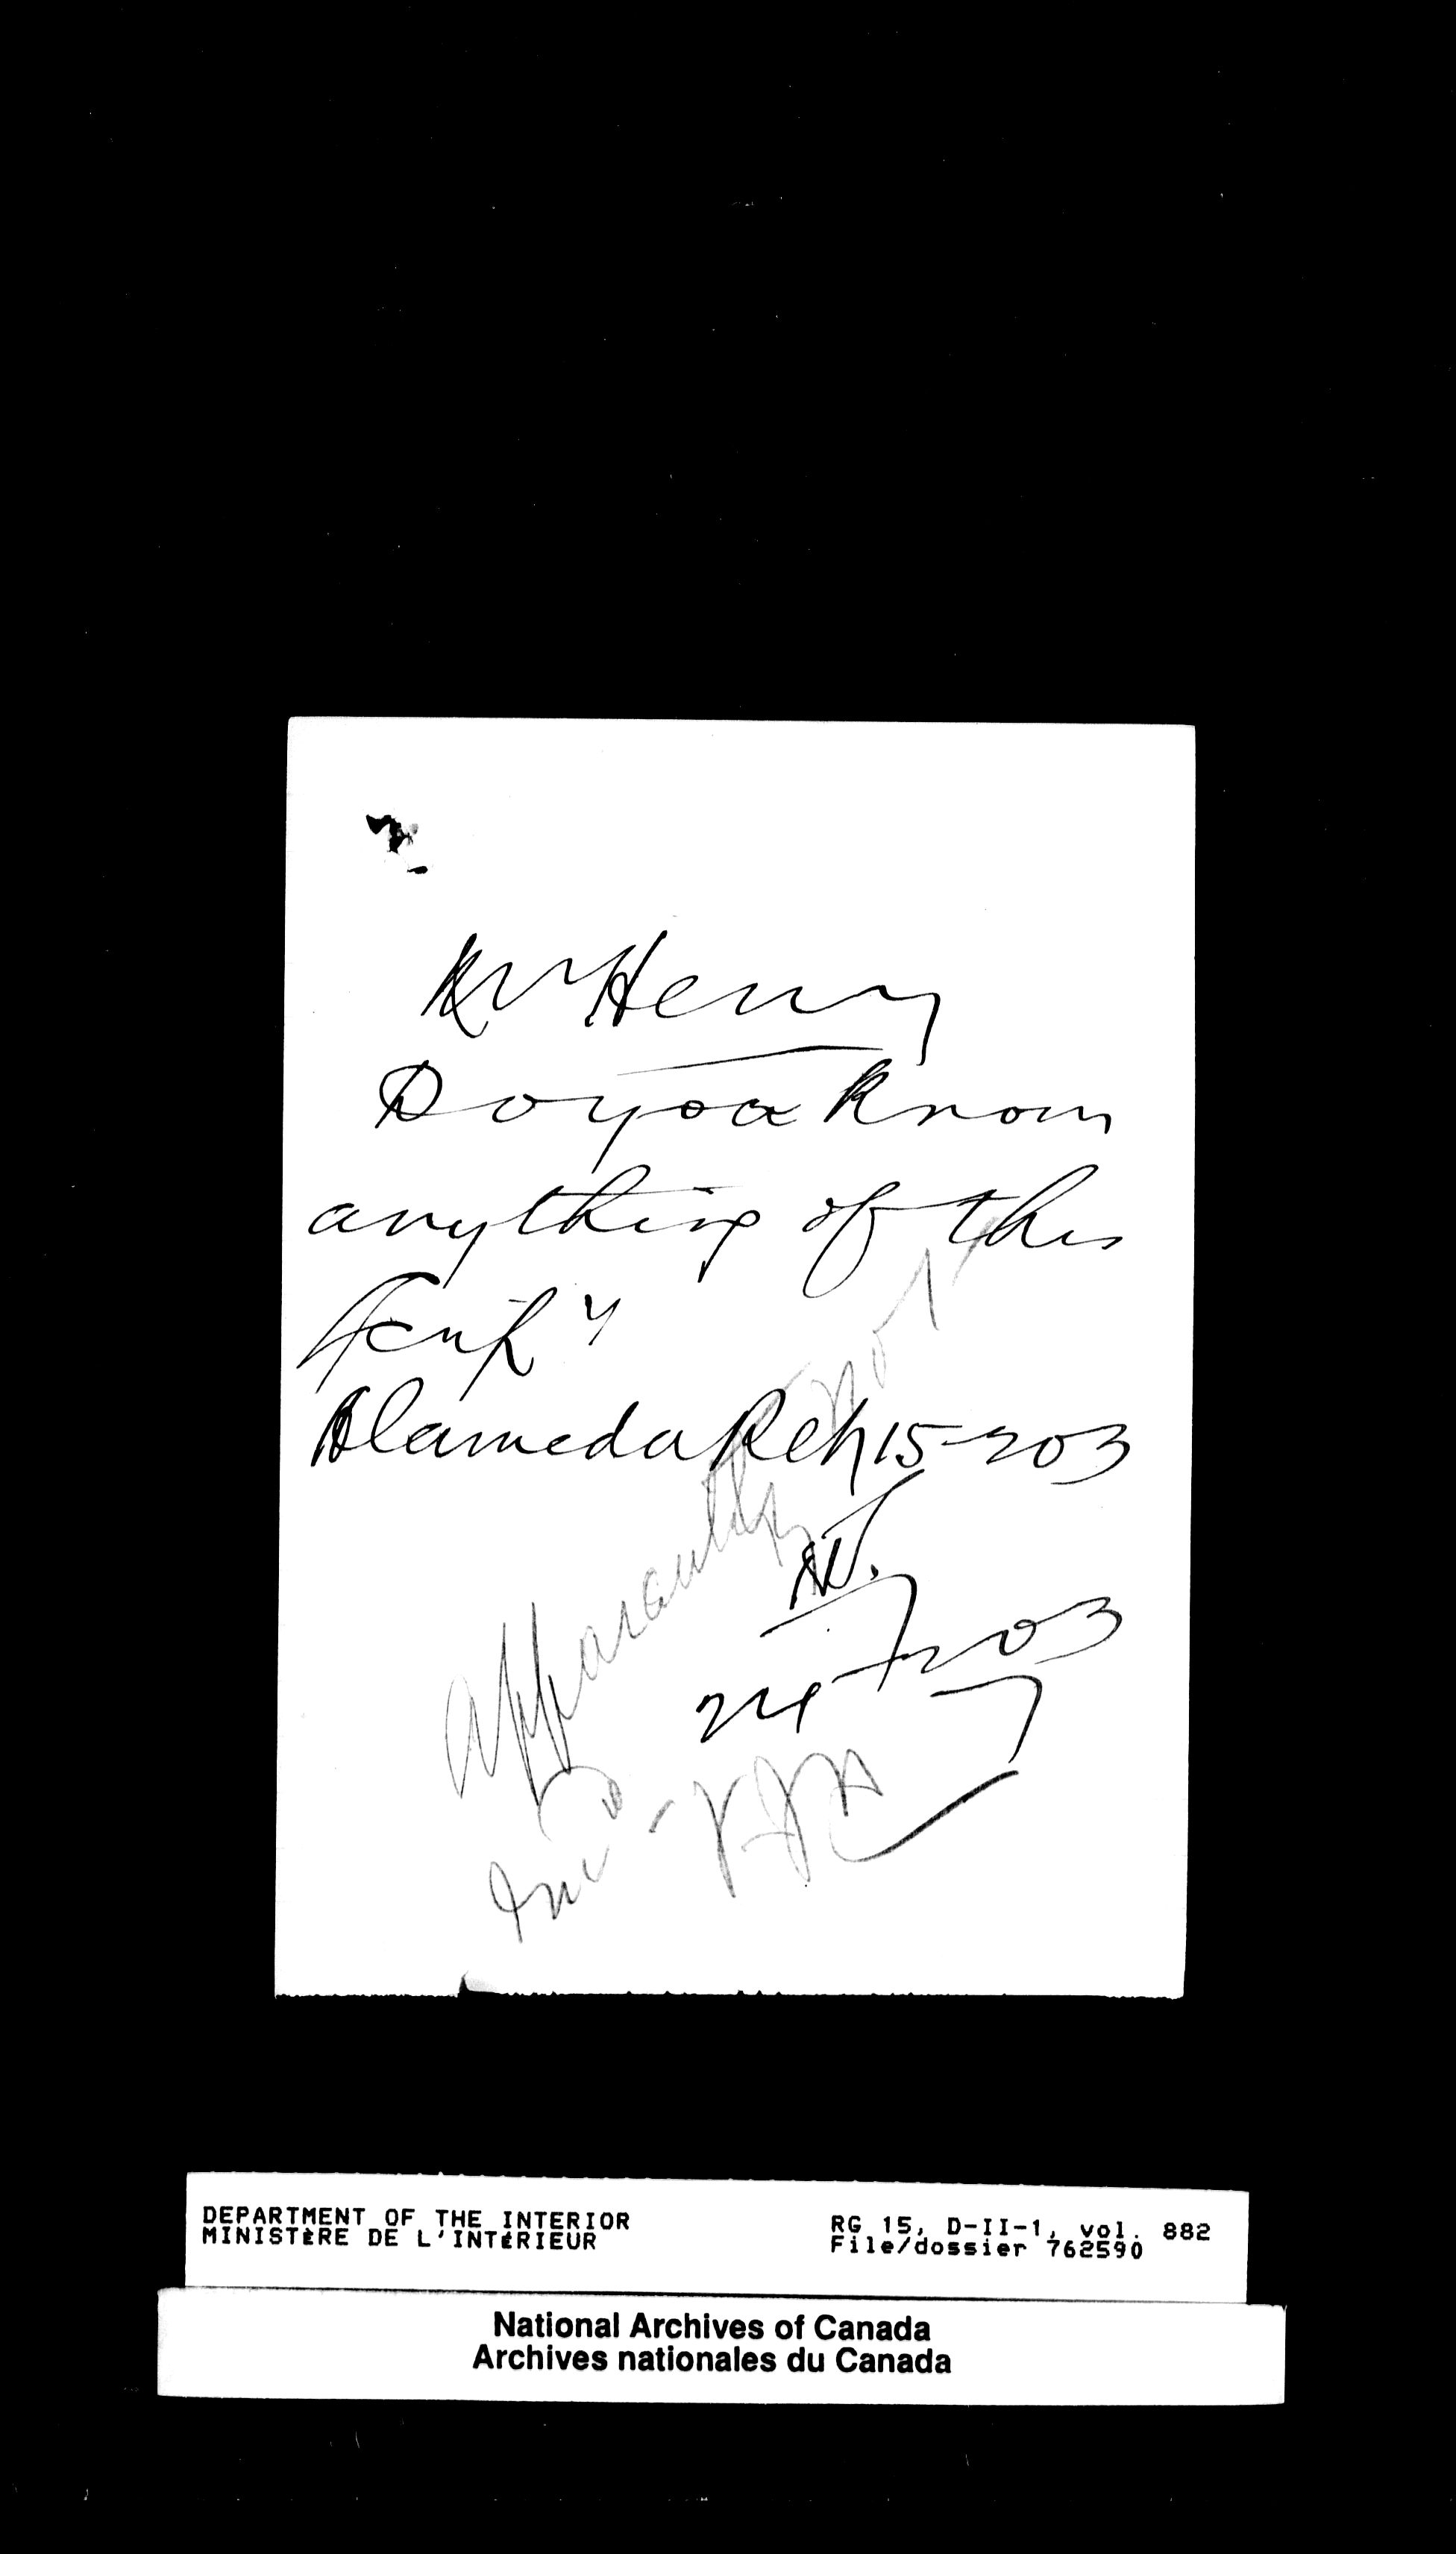 Mr Henry
Do you know
anything of this
Scrip
Alameda Ret 15-203
24-7-03
Apparently not
DEPARTMENT OF THE INTERIOR
MINISTÈRE DE L'INTÉRIEUR
RG 15, D-II-1, vol. 882
File/dossier 762590
National Archives of Canada
Archives nationales du Canada